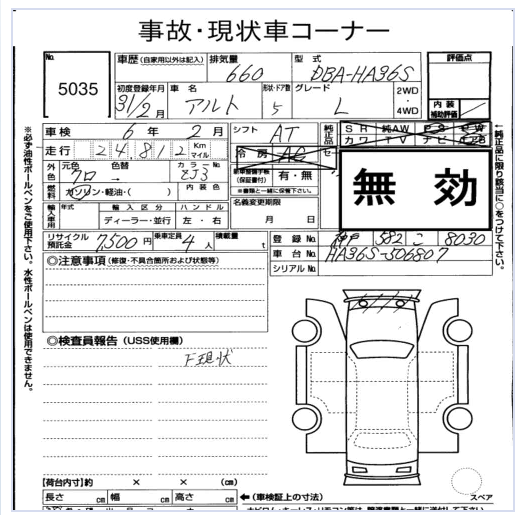 事故・現状車コーナー
No. 5035
車歴(自家用以外は記入) 排気量 660 型式 DBA-HA36S 評価点
初度登録年月 31/2月 車名 アルト 形状・ドア数 5 グレード L 2WD・4WD 内装補助評価
車検 6年 2月 シフト AT 純正品 SR 純AW PS PW
走行 24,812 Km マイル 冷房 AC カワ TV ナビ
外色 元色 クロ 色替 → カラーNo. ZJ3 新車整備手帳(保証書付) 有・無
燃料 ガソリン・軽油・( ) 内装色 ※書類と一緒に保管下さい。
無効
輸入車用 年式 輸入区分 ディーラー・並行 ハンドル 左・右 名義変更期限 月 日
リサイクル預託金 7,500円 乗車定員 4人 積載量 t 登録No. 神戸 582 こ 8030
車台No. HA36S-506807
シリアルNo.
◎注意事項(修復・不具合箇所および状態等)
◎検査員報告(USS使用欄)
下現状
【荷台内寸】約 × × (cm)
長さ cm 幅 cm 高さ cm ←(車検証上の寸法)
スペア
※必ず油性ボールペンをご使用下さい。水性ボールペンは使用できません。
←純正品に限り該当に○をつけて下さい。